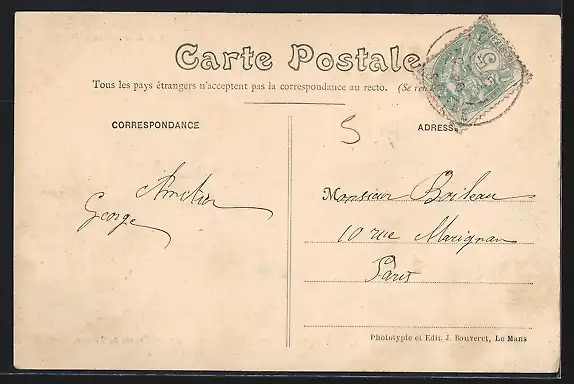 Carte Postale
Tous les pays étrangers n'acceptent pas la correspondance au recto. (Se ren
CORRESPONDANCE
ADRESS
5
Amitiés
George
Monsieur Boileau
10 rue Marignan
Paris
Phototypie et Edit. J. Bouveret, Le Mans